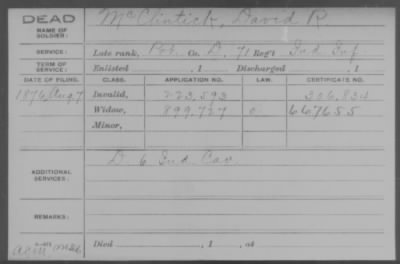 DEAD
NAME OF SOLDIER:
McClintick, David R
SERVICE:
Late rank, Pvt. Co. D, 71 Reg't Ind Inf.
TERM OF SERVICE:
Enlisted , 1 Discharged , 1
DATE OF FILING. CLASS. APPLICATION NO. LAW. CERTIFICATE NO.
1876, Aug 7 Invalid, 223,593 306,834
Widow, 899,727 c 667655
Minor,
ADDITIONAL SERVICES:
D 6 Ind Cav.
REMARKS:
Died , 1 , at